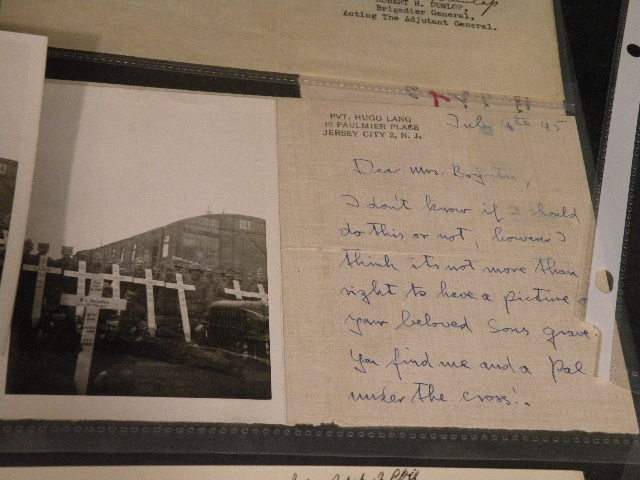 ROBERT H. DUNLOP,
Brigadier General,
Acting The Adjutant General.
14
PVT. HUGO LANG
10 PAULMIER PLACE
JERSEY CITY 2, N. J.
July 4te 45
Dear Mrs. Boynton,
I don't know if I should
do this or not, however I
think its not more than
right to have a picture
your beloved Sons grave.
You find me and a Pal
under the cross!.